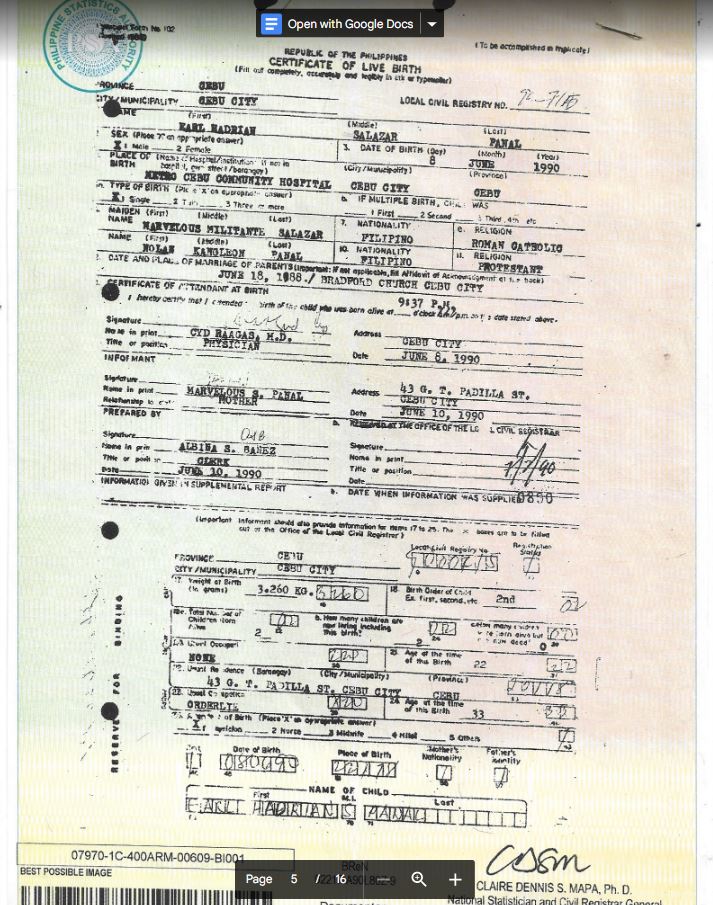 Open with Google Docs
PHILIPPINE STATISTICS AUTHORITY
Form No 102
(To be accomplished in triplicate)
REPUBLIC OF THE PHILIPPINES
CERTIFICATE OF LIVE BIRTH
(Fill out completely, accurately and legibly in ink or typewriter)
PROVINCE CEBU
CITY/MUNICIPALITY CEBU CITY
LOCAL CIVIL REGISTRY NO.
NAME (First) (Middle) (Last)
EARL HADRIAN SALAZAR PANAL
SEX (Place 'X' on appropriate answer)
X 1 Male 2 Female
3. DATE OF BIRTH (Day) (Month) (Year)
8 JUNE 1990
PLACE OF BIRTH (Name of Hospital/Institution; if not in hospital, give street/barangay) (City/Municipality) (Province)
METRO CEBU COMMUNITY HOSPITAL CEBU CITY CEBU
TYPE OF BIRTH (Place 'X' on appropriate answer)
X 1 Single 2 Twin 3 Three or more
b. IF MULTIPLE BIRTH, CHILD WAS
1 First 2 Second 3 Third, 4th, etc
MAIDEN NAME (First) (Middle) (Last)
MARVELOUS MILITANTE SALAZAR
7. NATIONALITY
FILIPINO
8. RELIGION
ROMAN CATHOLIC
NAME (First) (Middle) (Last)
NOLAN KANGLEON PANAL
10. NATIONALITY
FILIPINO
11. RELIGION
PROTESTANT
DATE AND PLACE OF MARRIAGE OF PARENTS (Important: If not applicable, fill Affidavit of Acknowledgment at the back)
JUNE 18, 1988 / BRADFORD CHURCH CEBU CITY
CERTIFICATE OF ATTENDANT AT BIRTH
I hereby certify that I attended birth of the child who was born alive at 9:37 P.M. o'clock am/pm on date stated above.
Signature
Name in print CYD RAAGAS, M.D.
Title or position PHYSICIAN
Address CEBU CITY
Date JUNE 8, 1990
INFORMANT
Signature
Name in print MARVELOUS S. PANAL
Relationship to MOTHER
Address 43 G. T. PADILLA ST.
CEBU CITY
Date JUNE 10, 1990
PREPARED BY
RECEIVED AT THE OFFICE OF THE LOCAL CIVIL REGISTRAR
Signature
Name in print ALBINA S. BAÑEZ
Title or position CLERK
Date JUNE 10, 1990
Signature
Name in print
Title or position
Date
INFORMATION GIVEN IN SUPPLEMENTAL REPORT
b. DATE WHEN INFORMATION WAS SUPPLIED
(Important: Informant should also provide information for items 17 to 25. The boxes are to be filled out at the Office of the Local Civil Registrar)
PROVINCE CEBU
CITY/MUNICIPALITY CEBU CITY
Local Civil Registry No
Registration Status
17. Weight at Birth (in grams) 3.260 KG. 3260
18. Birth Order of Child Ex. first, second, etc 2nd 02
Total Number of Children Born Alive 2 02
b. How many children are now living including this birth? 2 02
c. How many children were born alive but now dead? 0 00
Usual Occupation
NONE
21. Age at the time of this Birth 22 22
Usual Residence (Barangay) (City/Municipality) (Province)
43 G. T. PADILLA ST. CEBU CITY CEBU
Usual Occupation
ORDERLIE
24. Age at the time of this Birth 33 33
Attendant of Birth (Place 'X' on appropriate answer)
X 1 Physician 2 Nurse 3 Midwife 4 Hilot 5 Others
RESERVE FOR BINDING
Date of Birth Place of Birth Mother's Nationality Father's Nationality
080690
NAME OF CHILD
First M.I. Last
EARL HADRIAN S PANAL
07970-1C-400ARM-00609-BI001
BEST POSSIBLE IMAGE
BReN
Page 5 / 16
CLAIRE DENNIS S. MAPA, Ph. D.
National Statistician and Civil Registrar General